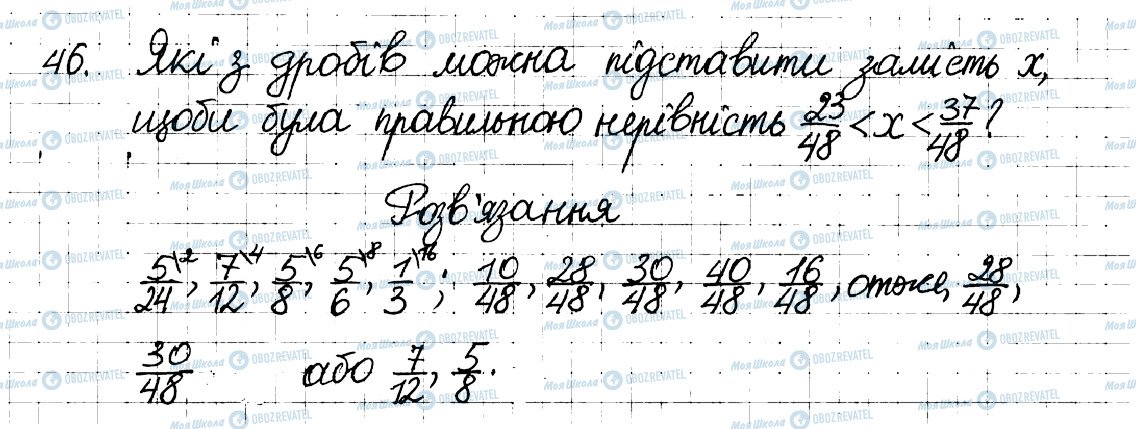 46. Які з дробів можна підставити замість x,
щоби була правильною нерівність 23/48 < x < 37/48?
Розв'язання
5/24 \2, 7/12 \4, 5/8 \6, 5/6 \8, 1/3 \16; 10/48, 28/48, 30/48, 40/48, 16/48, отже, 28/48,
30/48 або 7/12, 5/8.